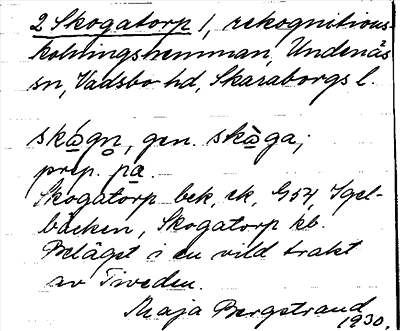 2 Skogatorp 1, rekognitions-
kolningshemman, Undenäs
sn, Vadsbo hd, Skaraborgs l.
skògn̥, gen. skòga;
prep. pa
Skogatorp bek, ek, G54, Igel-
bäcken, Skogatorp kb.
Beläget i en vild trakt
av Tiveden.
Maja Bergstrand
1930.